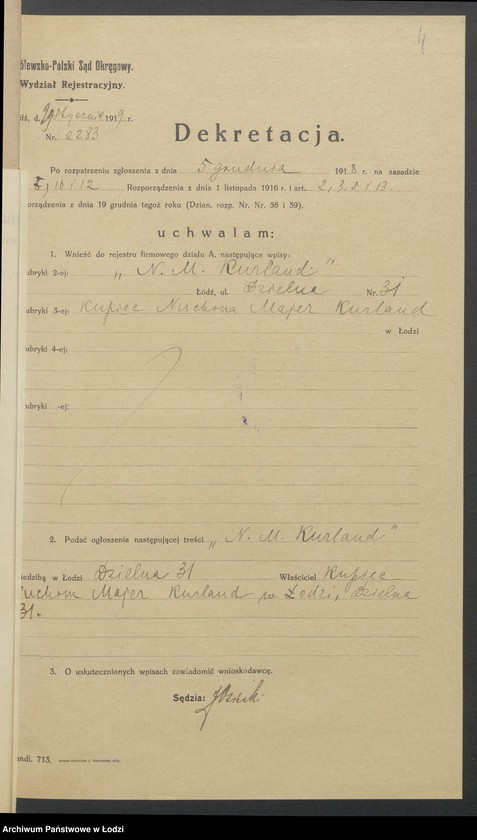 4
ólewsko-Polski Sąd Okręgowy.
Wydział Rejestracyjny.
dź, d. 9 stycznia 1919 r.
Nr. 2283
Dekretacja.
Po rozpatrzeniu zgłoszenia z dnia 5 grudnia 1918 r. na zasadzie
I, 10 i 12 Rozporządzenia z dnia 1 listopada 1916 r. i art. 2, 3, 8 i 13
orządzenia z dnia 19 grudnia tegoż roku (Dzien. rozp. Nr. Nr. 58 i 59),
uchwalam:
1. Wnieść do rejestru firmowego działu A, następujące wpisy:
ubryki 2-ej: „N. M. Kurland”
Łódź, ul. Dzielna Nr. 31
ubryki 3-ej: Kupiec Nuchona Majer Kurland
w Łodzi
ubryki 4-ej:
ubryki -ej:
2. Podać ogłoszenia następującej treści „N. M. Kurland”
iedzibą w Łodzi Dzielna 31 Właściciel Kupiec
uchom Majer Kurland w Łodzi, Dzielna
31.
3. O uskutecznionych wpisach zawiadomić wnioskodawcę.
Sędzia:
andl. 713.
Archiwum Państwowe w Łodzi